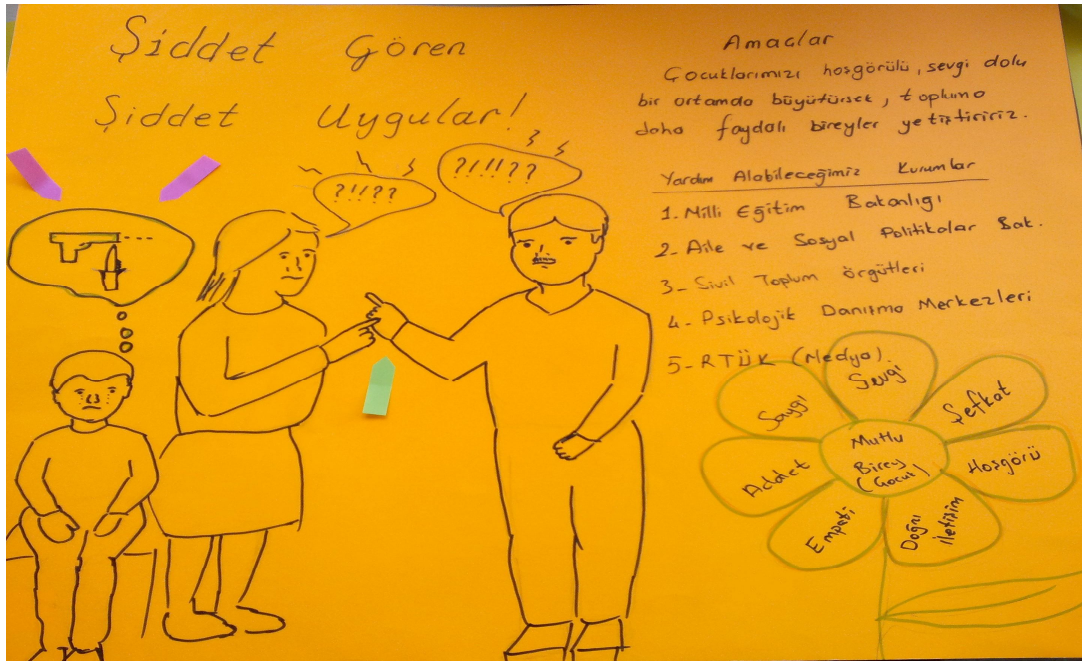 Şiddet Gören
Şiddet Uygular!
?!!??
?!!!??
Amaçlar
Çocuklarımızı hoşgörülü, sevgi dolu
bir ortamda büyütürsek, topluma
daha faydalı bireyler yetiştiririz.
Yardım Alabileceğimiz Kurumlar
1. Milli Eğitim Bakanlığı
2. Aile ve Sosyal Politikalar Bak.
3- Sivil Toplum örgütleri
4- Psikolojik Danışma Merkezleri
5- RTÜK (Medya).
Sevgi
Şefkat
Hoşgörü
Doğru
iletişim
Empati
Adalet
Saygı
Mutlu
Birey
(Çocuk)